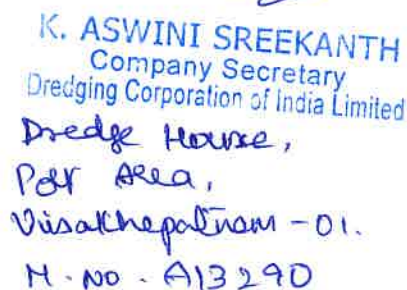 K. ASWINI SREEKANTH
Company Secretary
Dredging Corporation of India Limited
Dredge House,
Port Area,
Visakhapatnam - 01.
M. No. A13290